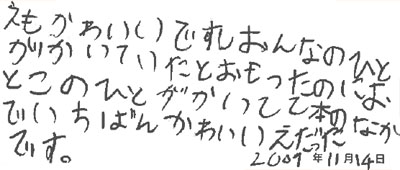 えもかわいいですしおんなのひと
がかいていたとおもったのにお
とこのひとがかいってて本のなか
でいちばんかわいいえだった
です。
2001年11月14日